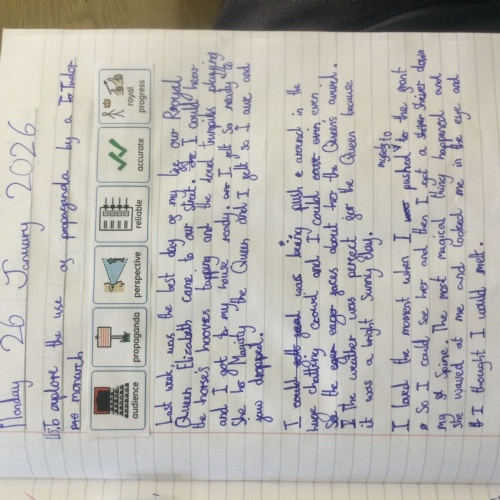 Monday 26 January 2026
to explore the use of propaganda by a Tudor
monarch
audience propaganda perspective reliable accurate royal progress
Last week was the best day of my life our Royal
Queen Elizabeth came to our street. I could hear
the horses hooves tapping and the loud trumpets playing
and I got to my house ready. I felt so
She her Majesty the Queen and I felt so I awe and
jaw dropped.
I was being push around in the
huge chatting crowd and I could even
See the eager faces about the Queens arrival.
The weather was perfect for the Queen because
it was a bright Sunny day.
I loved the moment when I pushed myself to the front
So I could see her and then I got a shiver down
my Spine. The most magical thing happened and
she waved at me and looked me in the eye and
I thought I would melt.